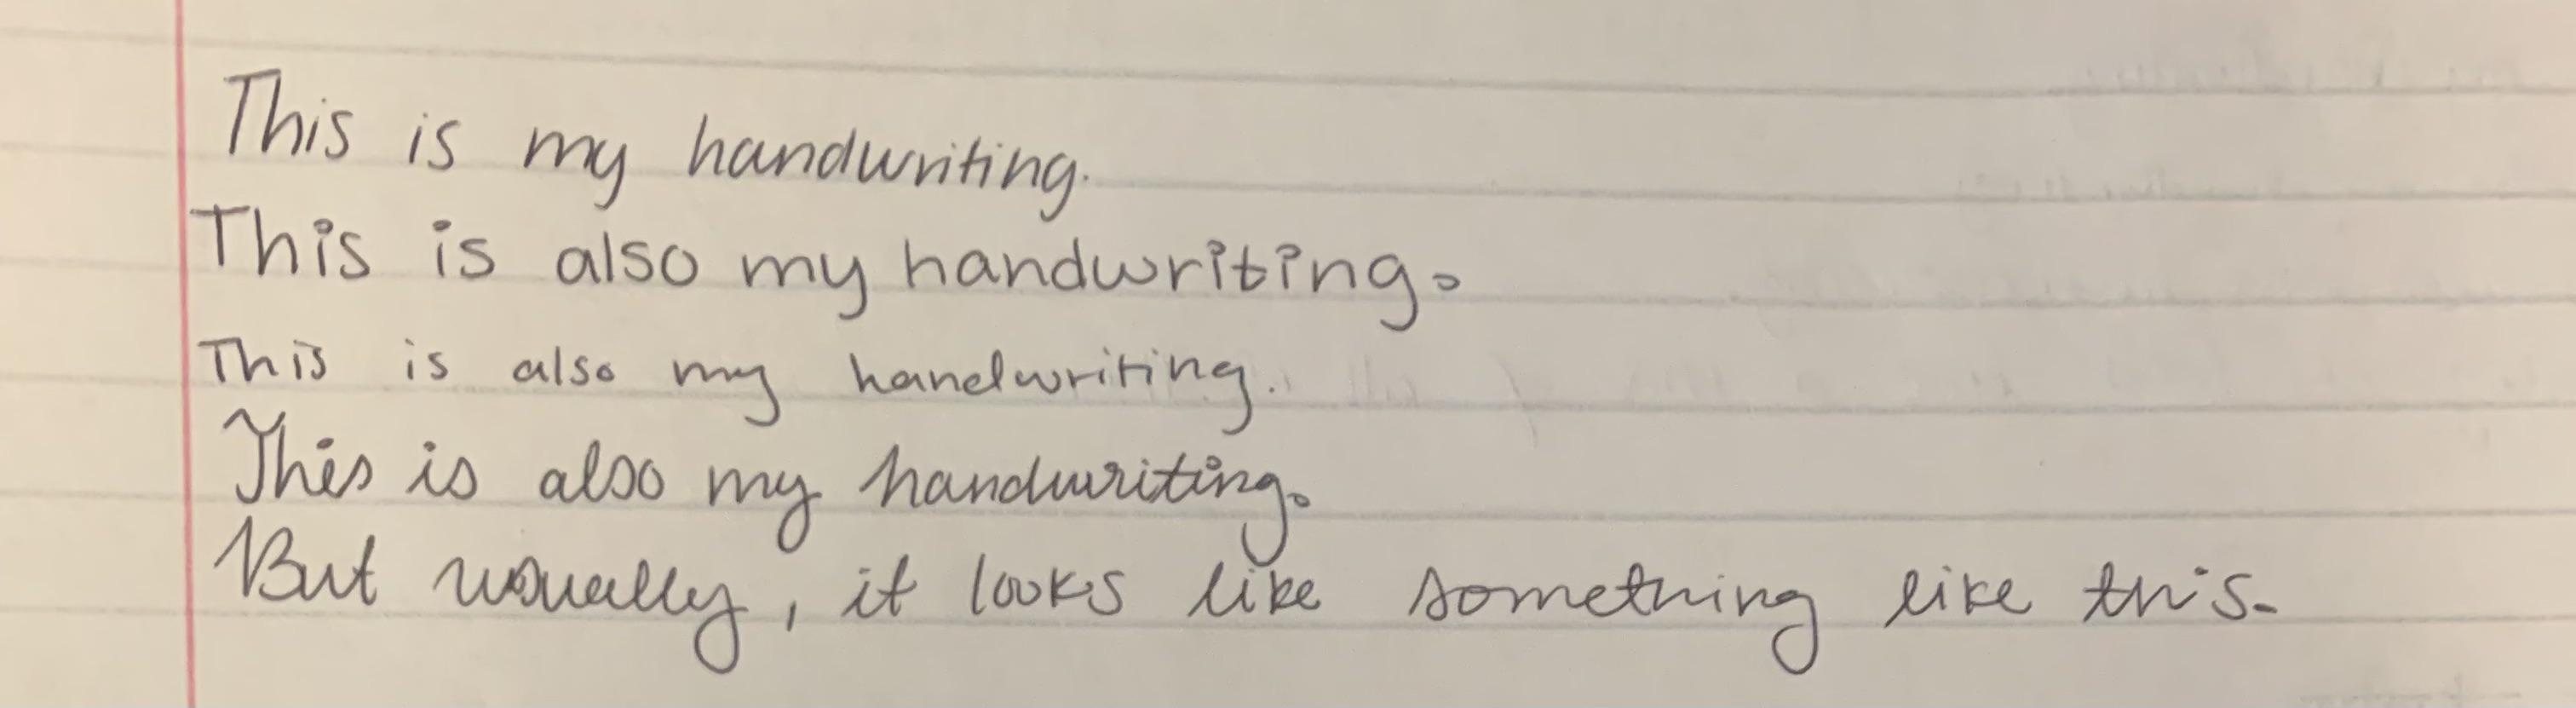 This is my handwriting.
This is also my handwriting.
This is also my handwriting.
This is also my handwriting.
But usually, it looks like something like this.